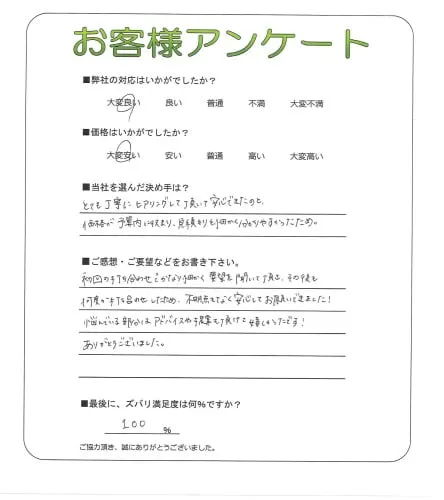 お客様アンケート
■弊社の対応はいかがでしたか？
大変良い 良い 普通 不満 大変不満
■価格はいかがでしたか？
大変安い 安い 普通 高い 大変高い
■当社を選んだ決め手は？
とても丁寧にヒアリングして頂いて安心できたのと、
価格が予算内に収まり、見積もりも細かく分かりやすかったため。
■ご感想・ご要望などをお書き下さい。
初回の打ち合わせでかなり細かく要望を聞いて頂き、その後も
何度か打ち合わせしたため、不明点もなく安心してお願いできました！
悩んでいる部分はアドバイスや提案も頂けて嬉しかったです！
ありがとうございました。
■最後に、ズバリ満足度は何％ですか？
100 ％
ご協力頂き、誠にありがとうございました。